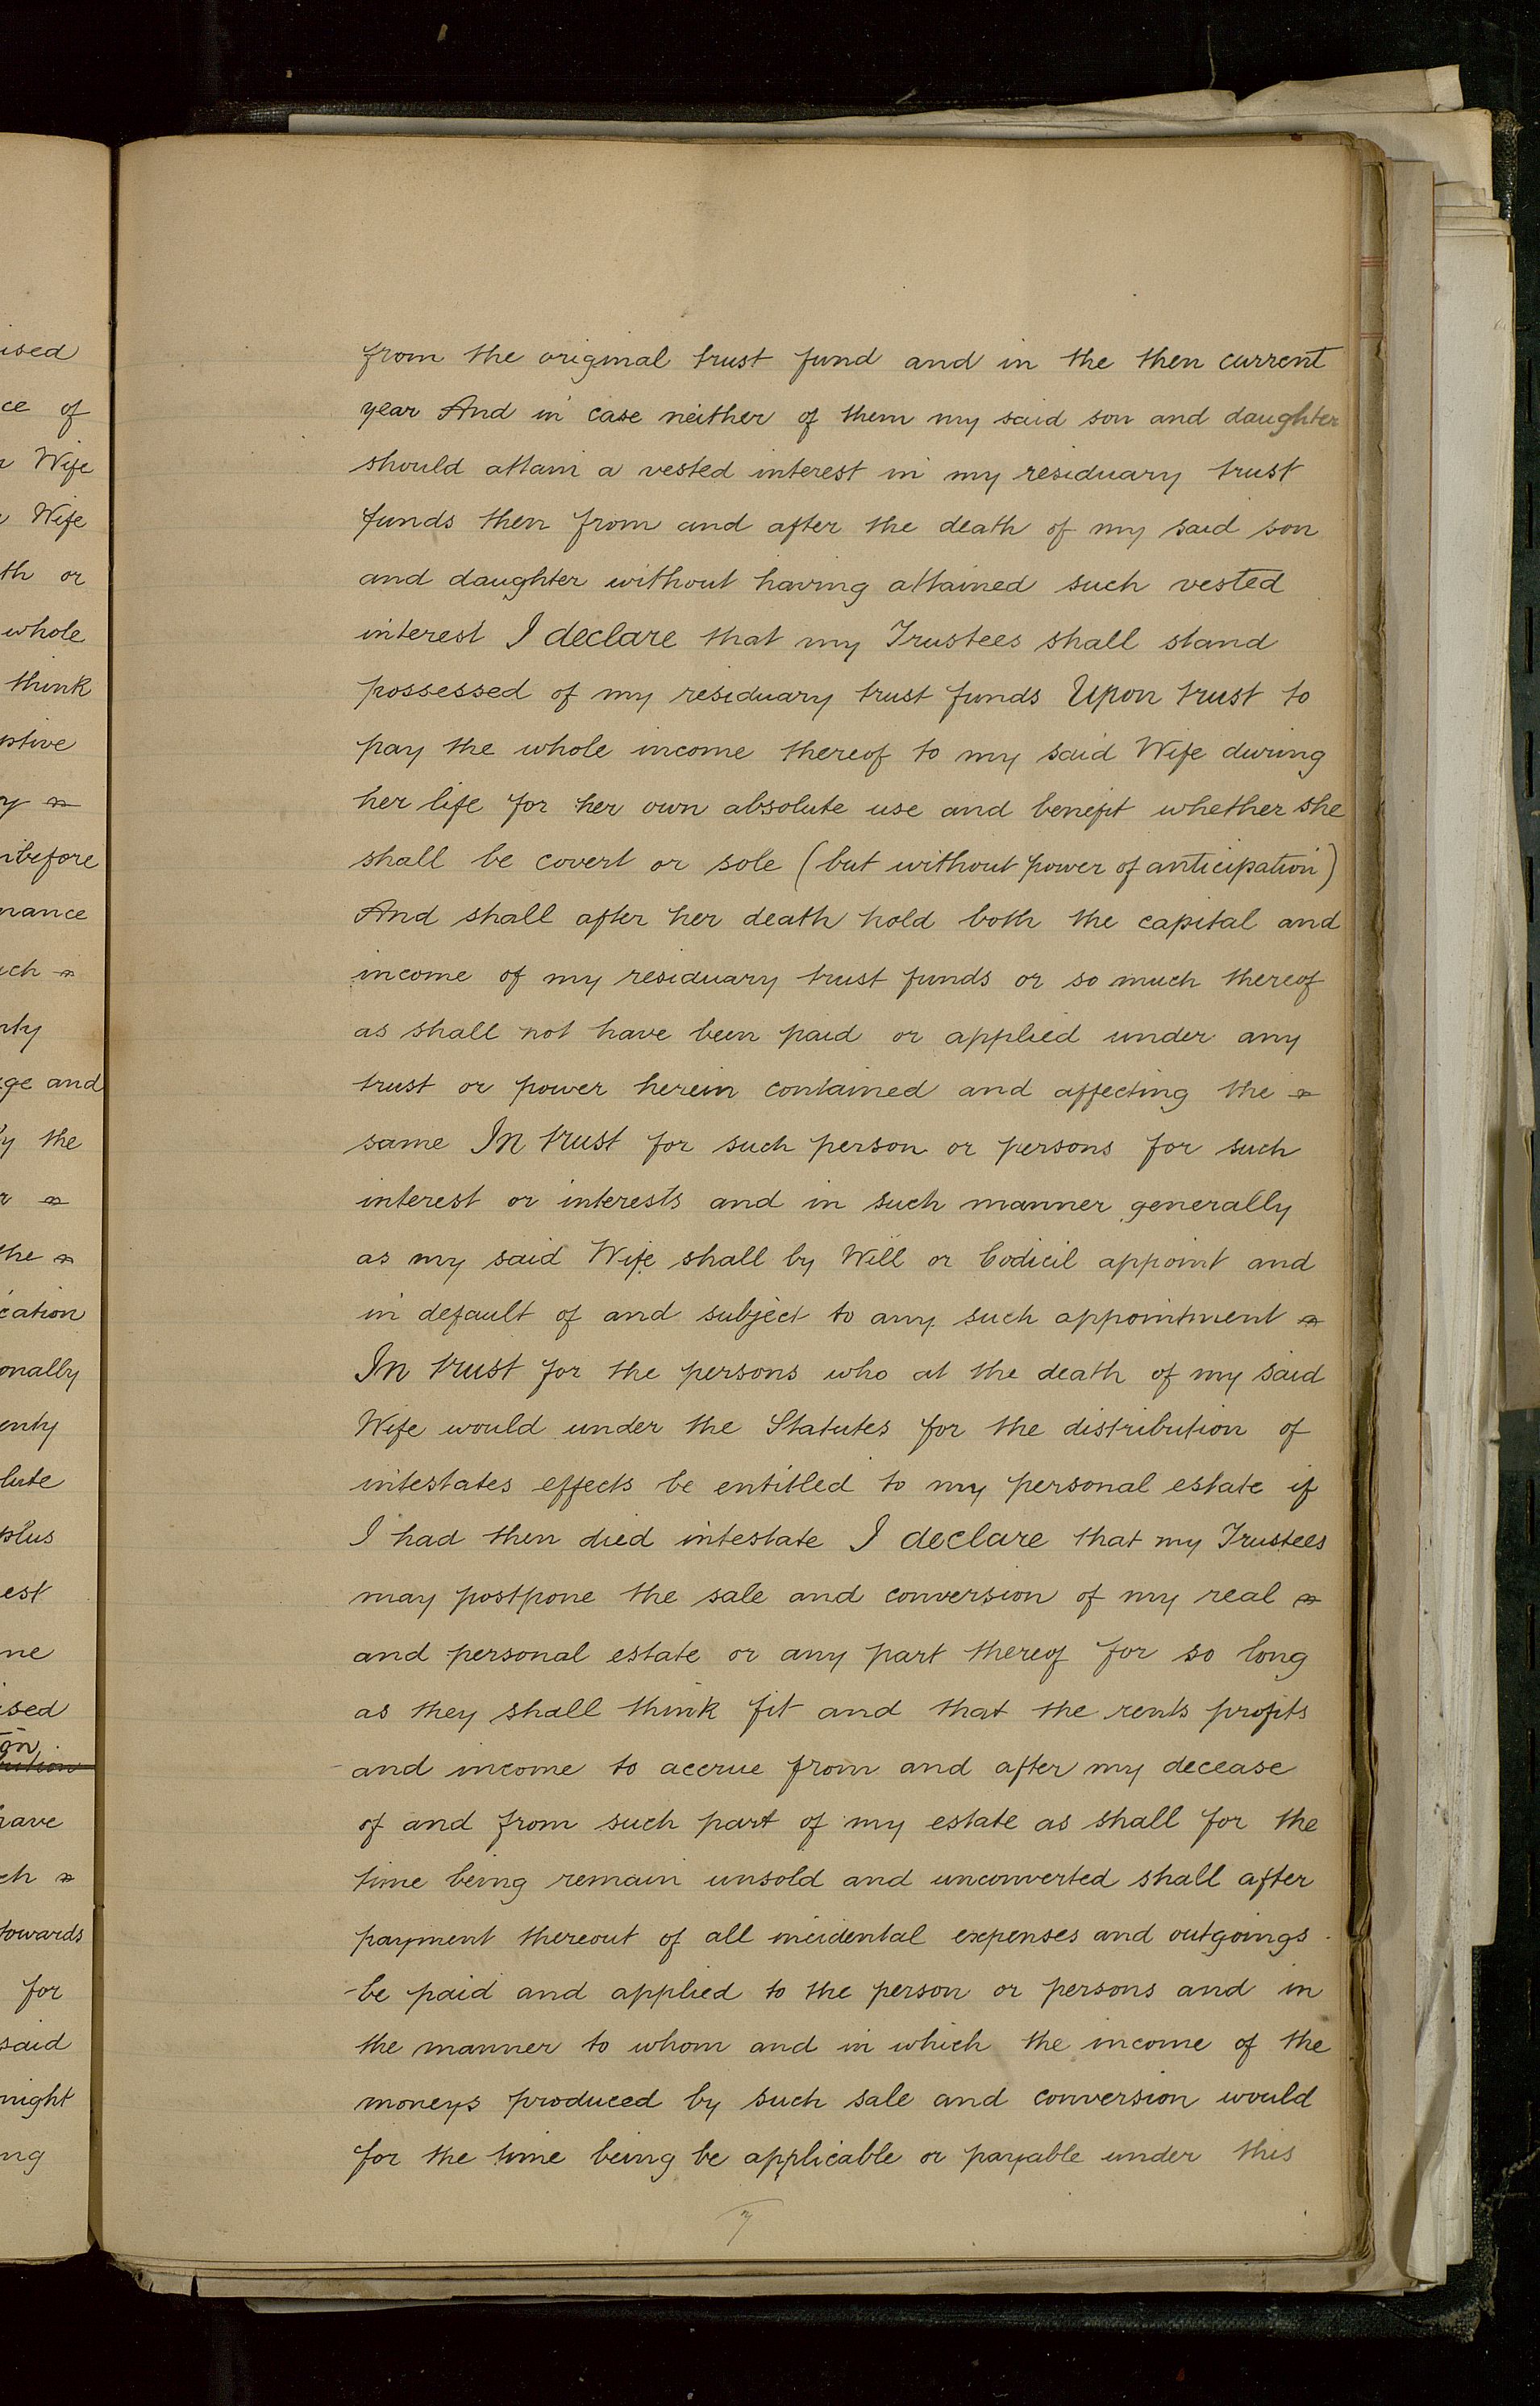 ised
ce of
Wife
Wife
th or
whole
think
ptive
y
nbefore
nance
uch
nty
age and
y the
r
the
cation
onally
enty
lute
plus
est
ne
ised
on
bution
have
ch
towards
for
said
might
ng
from the original trust fund and in the then current
year And in case neither of them my said son and daughter
should attain a vested interest in my residuary trust
funds then from and after the death of my said son
and daughter without having attained such vested
interest I declare that my Trustees shall stand
possessed of my residuary trust funds Upon trust to
pay the whole income thereof to my said Wife during
her life for her own absolute use and benefit whether she
shall be covert or sole (but without power of anticipation)
And shall after her death hold both the capital and
income of my residuary trust funds or so much thereof
as shall not have been paid or applied under any
trust or power herein contained and affecting the
same In trust for such person or persons for such
interest or interests and in such manner generally
as my said Wife shall by Will or Codicil appoint and
in default of and subject to any such appointment
In trust for the persons who at the death of my said
Wife would under the Statutes for the distribution of
intestates effects be entitled to my personal estate if
I had then died intestate I declare that my Trustees
may postpone the sale and conversion of my real
and personal estate or any part thereof for so long
as they shall think fit and that the rents profits
and income to accrue from and after my decease
of and from such part of my estate as shall for the
time being remain unsold and unconverted shall after
payment thereout of all incidental expenses and outgoings
be paid and applied to the person or persons and in
the manner to whom and in which the income of the
moneys produced by such sale and conversion would
for the time being be applicable or payable under this